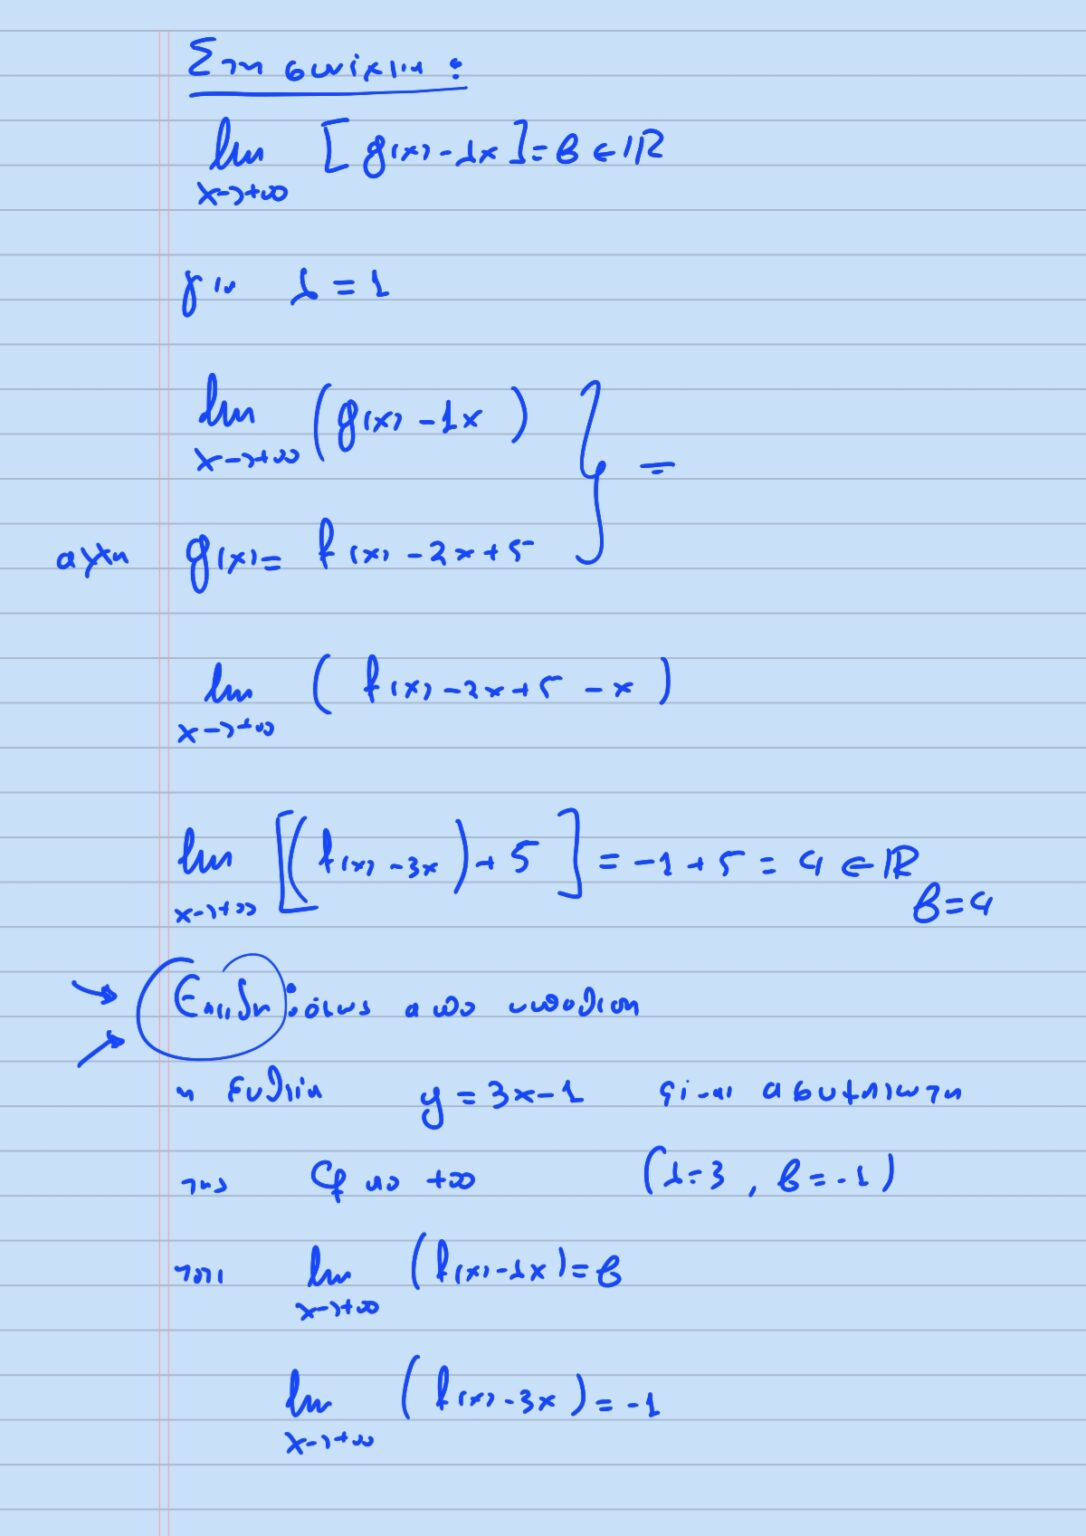 Στη συνέχεια :
lim [g(x) - λx] = β ∈ ℝ
x→+∞
για λ = 1
lim (g(x) - 1x)
x→+∞
αρχη g(x) = f(x) - 2x + 5 } =
lim ( f(x) - 2x + 5 - x )
x→+∞
lim [(f(x) - 3x) + 5] = -1 + 5 = 4 ∈ ℝ
x→+∞ β = 4
Επειδη : όμως απο υποθεση
η ευθεία y = 3x - 1 είναι ασυμπτωτη
της Cf στο +∞ (λ = 3, β = -1)
τοτε lim (f(x) - λx) = β
x→+∞
lim (f(x) - 3x) = -1
x→+∞